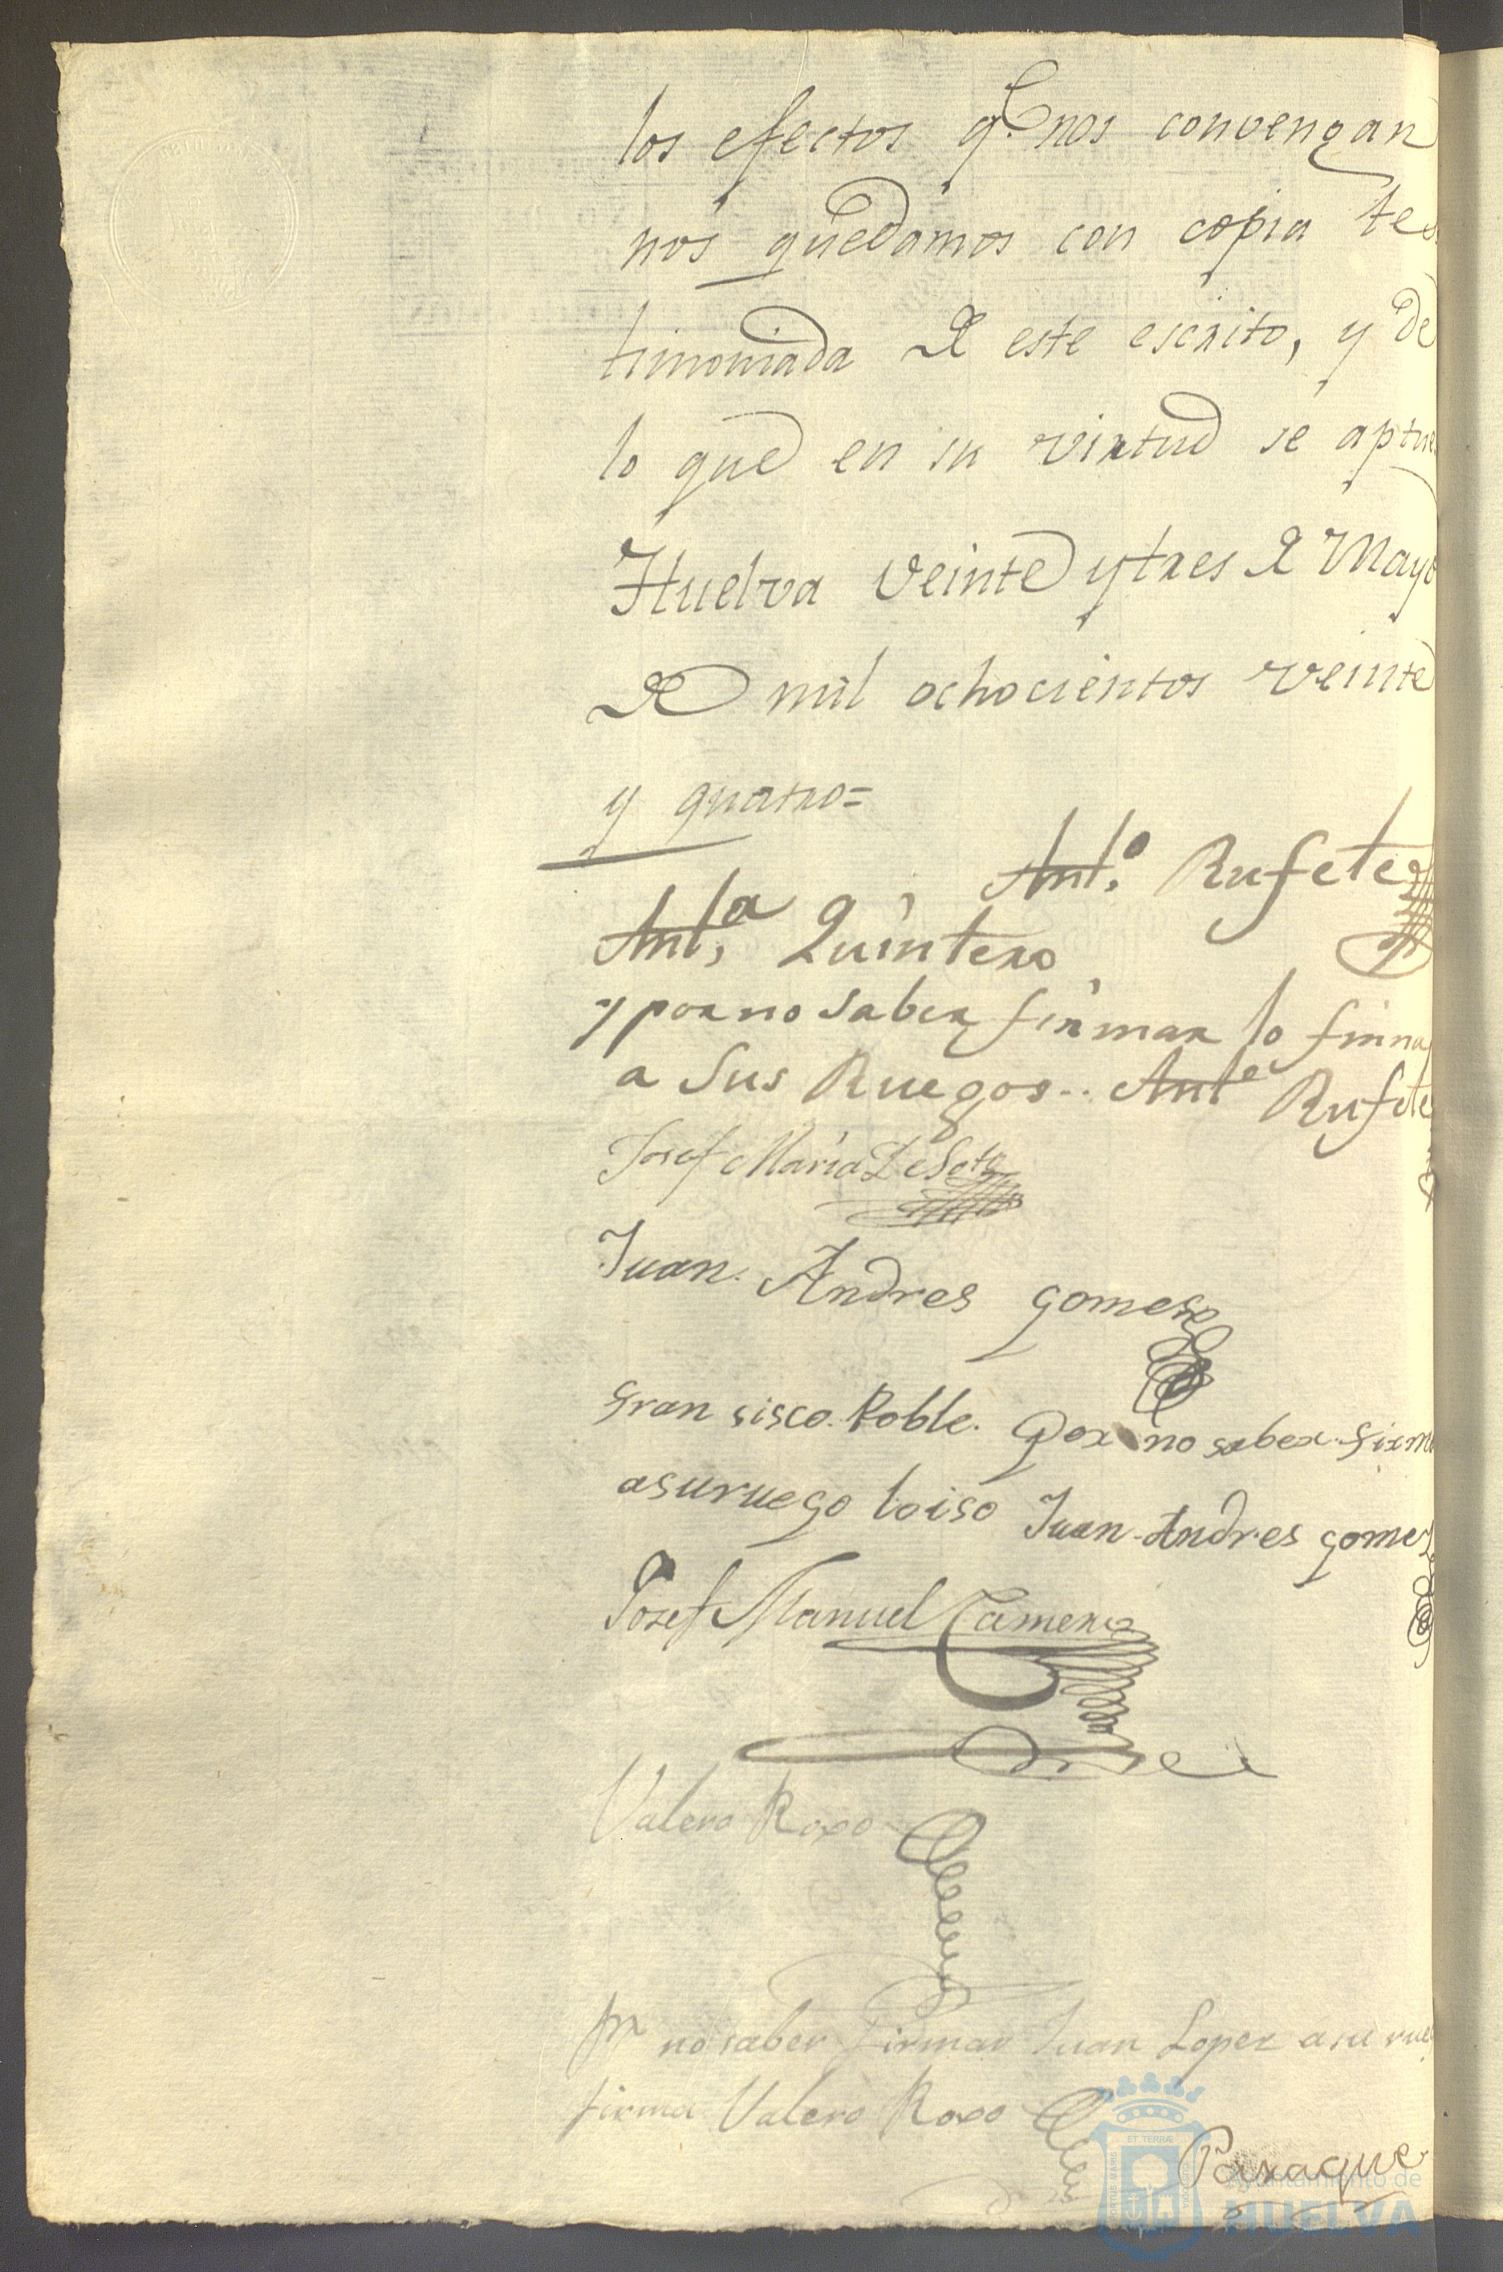 los efectos q.e nos convengan
nos quedamos con copia tes
timoniada de este escrito, y de
lo que en su virtud se aptue
Huelva veinte y tres de Mayo
de mil ochocientos veinte
y quatro=
Ant.o Rufete
Ant.a Quintero
y por no saber firmar lo firma
a Sus Ruegos.. Ant.o Rufete
Josef Maria de Soto
Juan. Andres gomes
fran sisco. Roble. Por no saber. firma
asuruego loiso Juan. Andres gomez
Josef Manuel Camero
Valero Roxo
Pr no saber Firmar Juan Lopez a su rue
firma Valero Roxo
Paraque
Ayuntamiento de
HUELVA